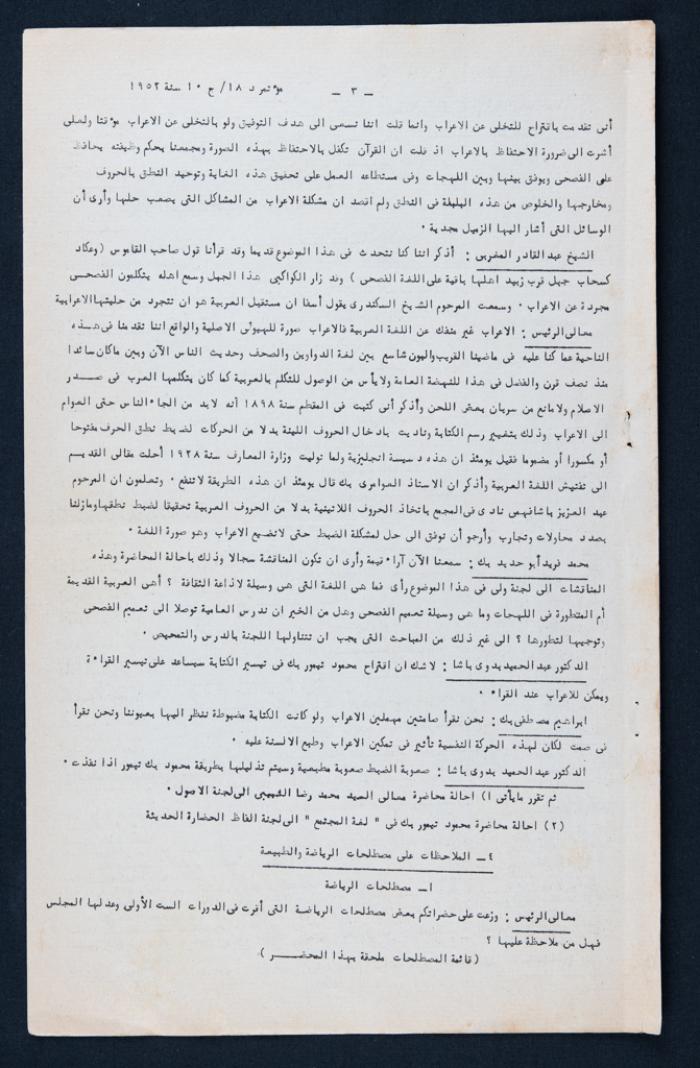 ـ ٣ ـ مؤتمر د ١٨/ ج ١٠ سنة ١٩٥٢
أنى تقدمت باقتراح للتخلى عن الاعراب وانما قلت اننا نسعى الى هدف التوفيق ولو بالتخلى عن الاعراب مؤقتا ولعلى
أشرت الى ضرورة الاحتفاظ بالاعراب اذ قلت ان القرآن تكفل بالاحتفاظ بهذه الصورة ومجمعنا بحكم وظيفته يحافظ
على الفصحى ويوفق بينها وبين اللهجات وفى مستطاعه العمل على تحقيق هذه الغاية وتوحيد النطق بالحروف
ومخارجها والخلوص من هذه البلبلة فى النطق ولم اقصد ان مشكلة الاعراب من المشاكل التى يصعب حلها وأرى أن
الوسائل التى أشار اليها الزميل مجدية ٠
الشيخ عبد القادر المغربى : أذكر اننا كنا نتحدث فى هذا الموضوع قديما وقد قرأنا قول صاحب القاموس ( وعكاد
كسحاب جبل قرب زبيد اهلها باقية على اللغة الفصحى ) وقد زار الكواكبى هذا الجبل وسمع اهله يتكلمون الفصحى
مجردة عن الاعراب ٠ وسمعت المرحوم الشيخ السكندرى يقول أسفا ان مستقبل العربية هو ان تتجرد من حليتها الاعرابية
معالى الرئيس : الاعراب غير منفك عن اللغة العربية فالاعراب صورة للهيولى الاصلية والواقع اننا تقدمنا فى هذه
الناحية عما كنا عليه فى ماضينا القريب والبون شاسع بين لغة الدواوين والصحف وحديث الناس الآن وبين ماكان سائدا
منذ نصف قرن والفضل فى هذا للنهضة العامة ولا يأس من الوصول للتكلم بالعربية كما كان يتكلمها العرب فى صـــدر
الاسلام ولا مانع من سريان بعض اللحن وأذكر أنى كتبت فى المقطم سنة ١٨٩٨ أنه لابد من الجاء الناس حتى العوام
الى الاعراب وذلك بتغيير رسم الكتابة وناديت بادخال الحروف اللينة بدلا من الحركات لضبط نطق الحرف مفتوحا
أو مكسورا أو مضموما فقيل يومئذ ان هذه دسيسة انجليزية ولما توليت وزارة المعارف سنة ١٩٢٨ أحلت مقالى القديم
الى تفتيش اللغة العربية وأذكر ان الاستاذ العوامرى بك قال يومئذ ان هذه الطريقة لا تنفع ٠ وتعلمون ان المرحوم
عبد العزيز باشا فهمى نادى فى المجمع باتخاذ الحروف اللاتينية بدلا من الحروف العربية تحقيقا لضبط نطقها ومازلنا
بصدد محاولات وتجارب وأرجو أن نوفق الى حل لمشكلة الضبط حتى لا تضيع الاعراب وهو صورة اللغة ٠
محمد فريد أبو حديد بك : سمعنا الآن آراء قيمة وأرى ان تكون المناقشة سجالا وذلك باحالة المحاضرة وهذه
المناقشات الى لجنة ولى فى هذا الموضوع رأى فما هى اللغة التى هى وسيلة لاذاعة الثقافة ؟ أهى العربية القديمة
أم المتطورة فى اللهجات وما هى وسيلة تعميم الفصحى وهل من الخير ان ندرس العامية توصلا الى تعميم الفصحى
وتوجيهها لتطورها ؟ الى غير ذلك من المباحث التى يجب ان تتناولها اللجنة بالدرس والتمحيص ٠
الدكتور عبد الحميد بدوى باشا : لاشك ان اقتراح محمود تيمور بك فى تيسير الكتابة سيساعد على تيسير القراءة
ويمكن للاعراب عند القراء ٠
ابراهيم مصطفى بك : نحن نقرأ صامتين مهملين الاعراب ولو كانت الكتابة مضبوطة ننظر اليها بعيوننا ونحن نقرأ
فى صمت لكان لهذه الحركة النفسية تأثير فى تمكين الاعراب وطبع الالسنة عليه ٠
الدكتور عبد الحميد بدوى باشا : صعوبة الضبط صعوبة مطبعية وسيتم تذليلها بطريقة محمود بك تيمور اذا نفذت ٠
ثم تقرر مايأتى ١) احالة محاضرة معالى السيد محمد رضا الشبيبى الى لجنة الاصول ٠
(٢) احالة محاضرة محمود تيمور بك فى " لغة المجتمع " الى لجنة الفاظ الحضارة الحديثة
٤ــ الملاحظات على مصطلحات الرياضة والطبيعة
١ــ مصطلحات الرياضة
معالى الرئيس : وزعت على حضراتكم بعض مصطلحات الرياضة التى أقرت فى الدورات الست الأولى وعدلها المجلس
فهل من ملاحظة عليها ؟
( قائمة المصطلحات ملحقة بهذا المحضـــر )